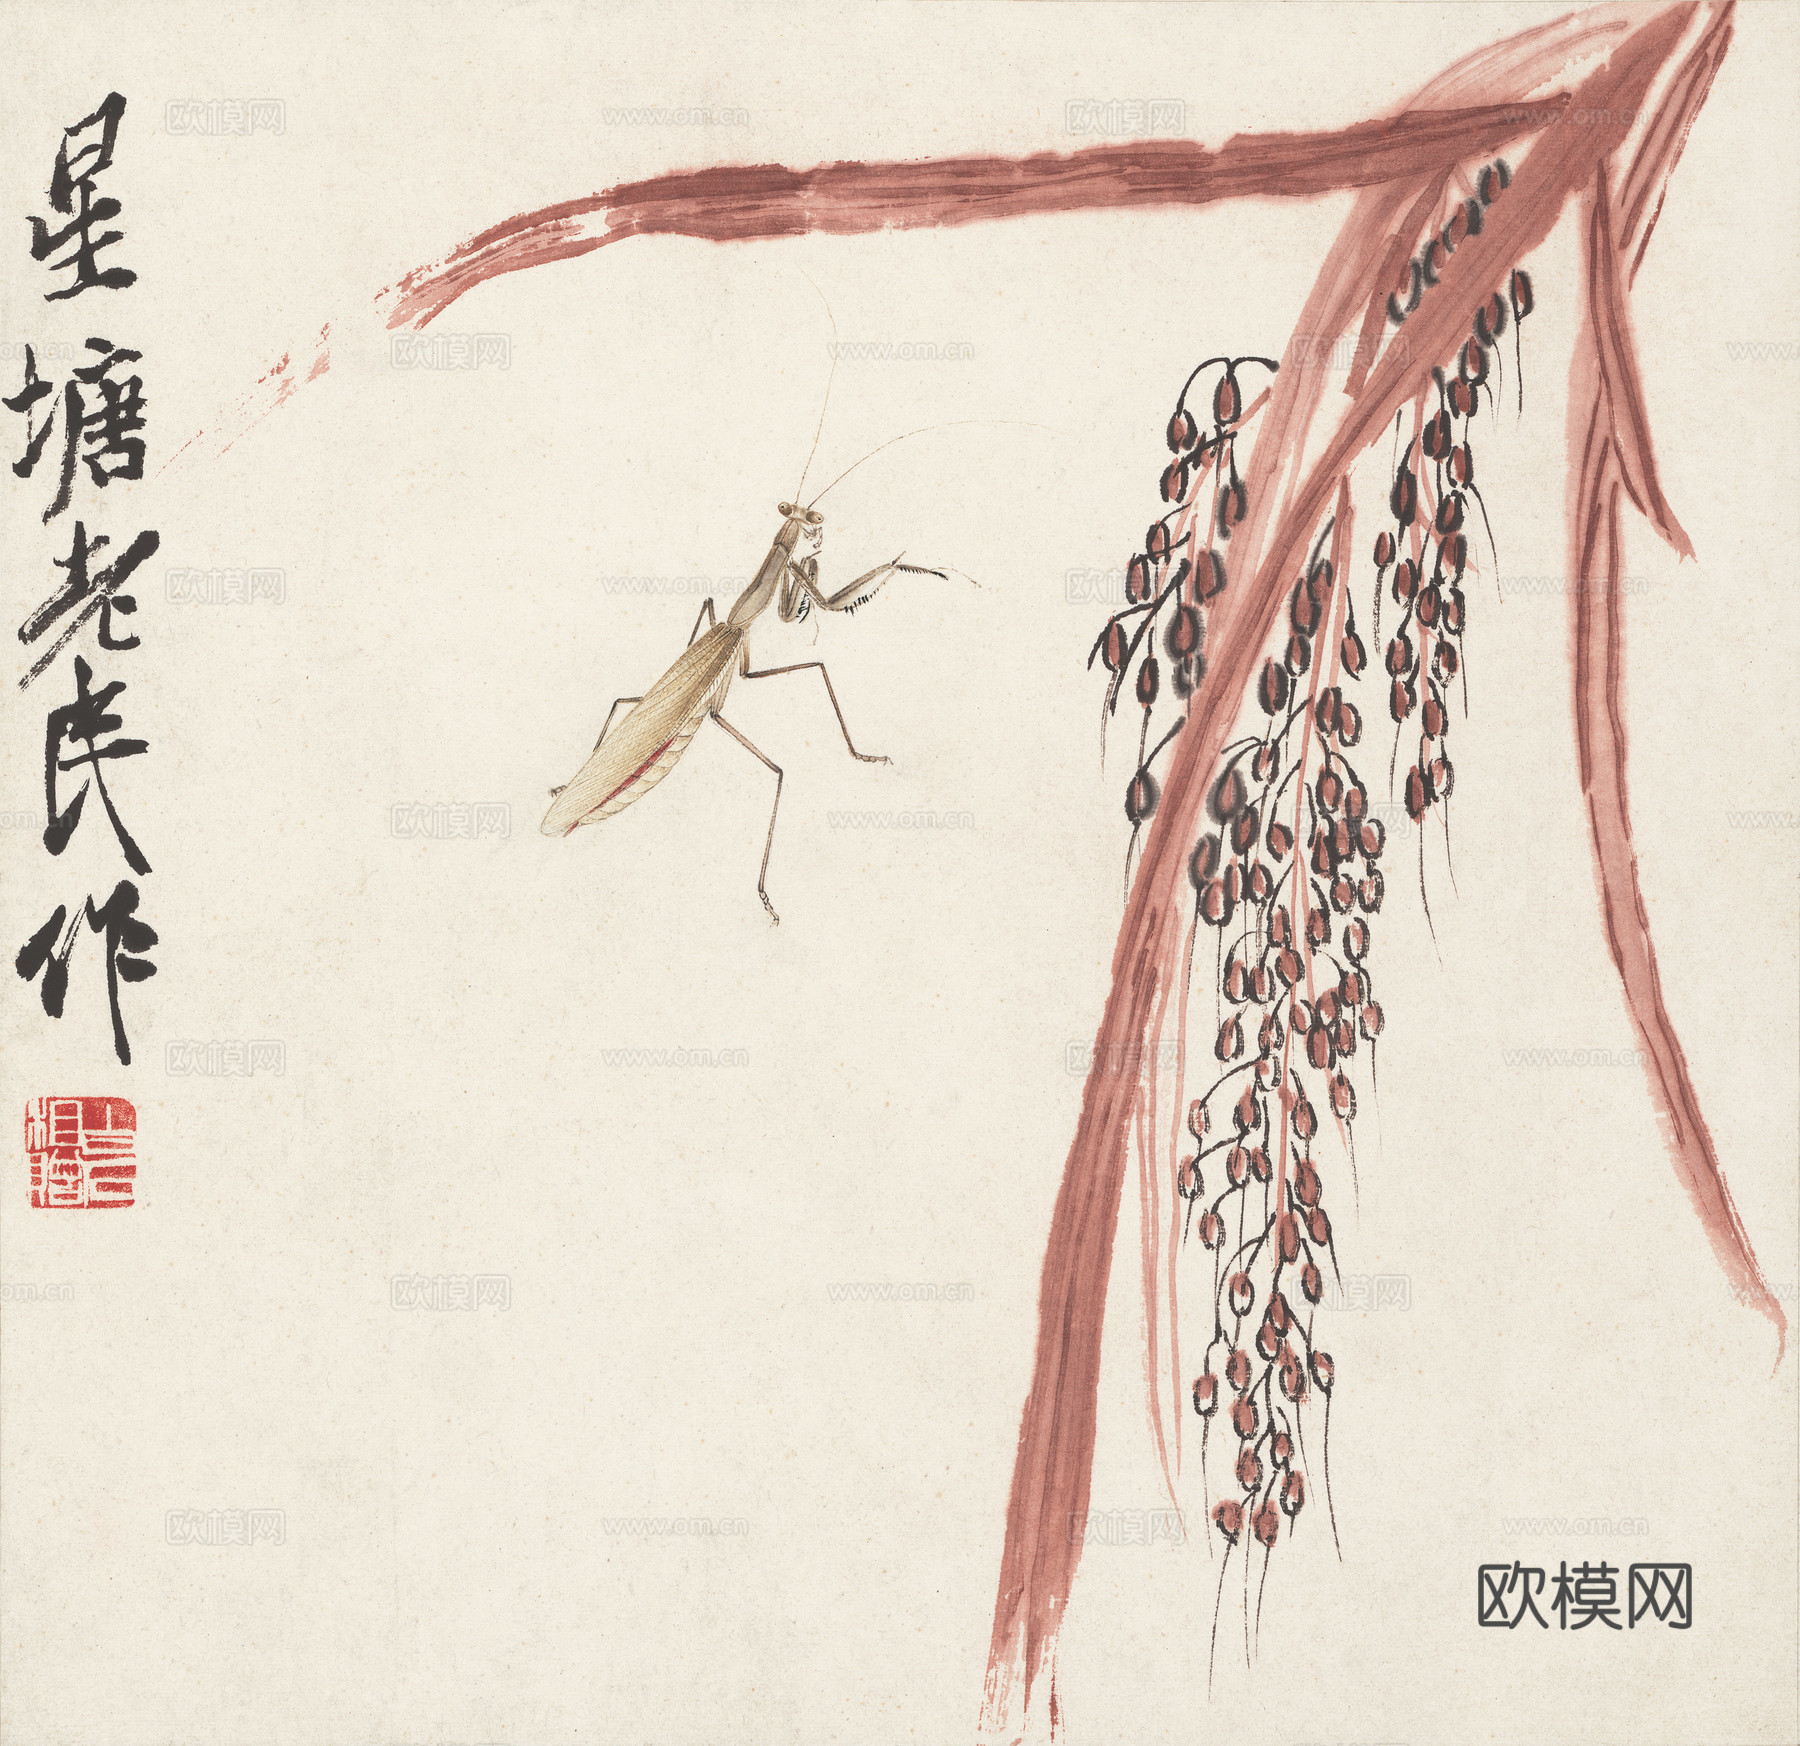 星塘老民作
欧模网
www.om.cn
欧模网